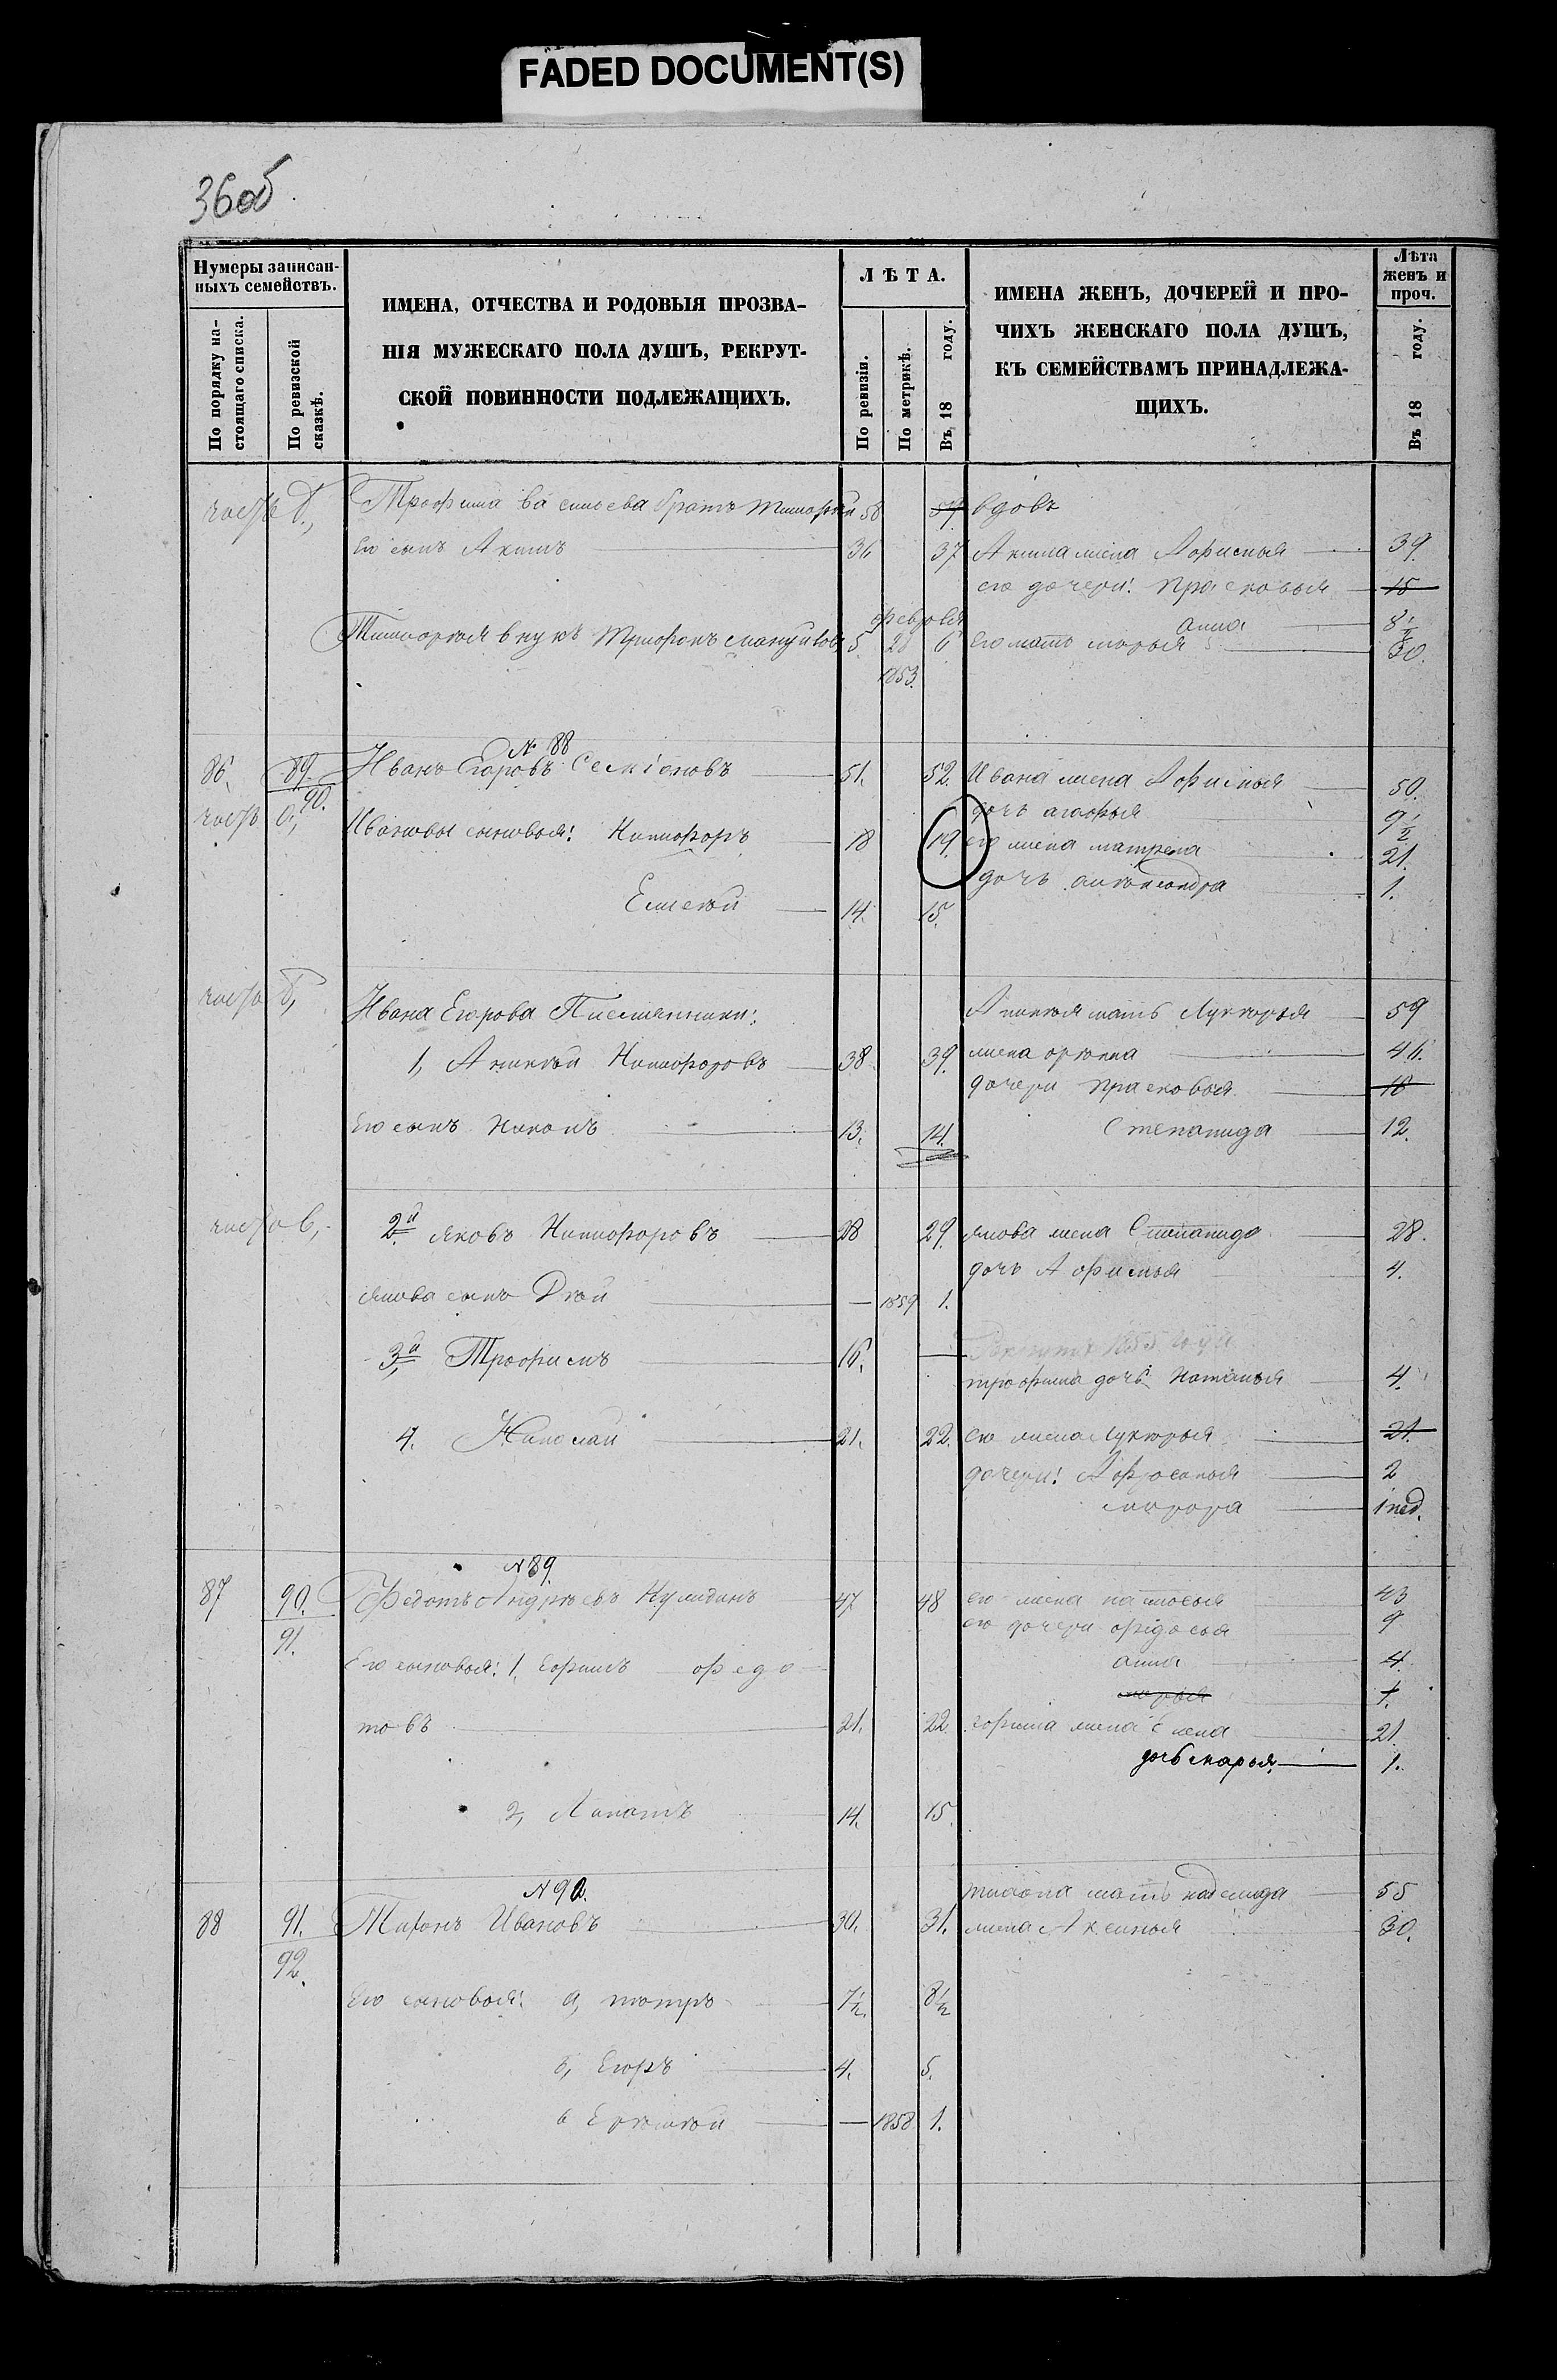 FADED DOCUMENT(S)
36об
Нумеры записан-
ныхъ семействъ.
По порядку на-
стоящаго списка.
По ревизской
сказкѣ.
ИМЕНА, ОТЧЕСТВА И РОДОВЫЯ ПРОЗВА-
НІЯ МУЖЕСКАГО ПОЛА ДУШЪ, РЕКРУТ-
СКОЙ ПОВИННОСТИ ПОДЛЕЖАЩИХЪ.
ЛѢТА.
По ревизіи.
По метрикѣ.
Въ 18 году.
ИМЕНА ЖЕНЪ, ДОЧЕРЕЙ И ПРО-
ЧИХЪ ЖЕНСКАГО ПОЛА ДУШЪ,
КЪ СЕМЕЙСТВАМЪ ПРИНАДЛЕЖА-
ЩИХЪ.
Лѣта
женъ и
проч.
Въ 18 году.
часть б, Трофима Васильева братъ Тимофѣй 58 вдовъ
Его сынъ Акимъ 36 37 Акима жена Афимья 39
его дочери: Прасковья 15
февраля Анна 8 1/2
Тимофѣя внукъ 5 28 6 Его мать Марья 30.
1853.
№ 88
86, 89. Иванъ Егоровъ Семіоновъ 51. 52. Ивана жена Афимья 50.
90. дочь Агафья 9 1/2
часть а, Ивановы сыновья: Никифоръ 18 19. его жена Матрена 21.
дочь Александра 1.
14. 15.
часть б, Ивана Егорова Племянники: мать Лукерья 59
1, Никифоровъ 38 39. жена 46.
дочери Прасковья 18
Его сынъ Никонъ 13. 14. Степанида 12.
часть в, 2й Яковъ Никифоровъ 28 29. Якова жена Степанида 28.
дочь Афимья 4.
Якова сынъ 1859 1.
3й Трофимъ 16. 1855 года
Трофима дочь Наталья 4.
4. Николай 21. 22. его жена Лукерья 21.
дочери: Афросинья 2
1 нед.
№ 89.
87 90. Федотъ Андрѣевъ 47 48 его жена 43
91. его дочери Федосья 9
Его сыновья: 1, Ефимъ Федо Анна 4.
Марья 1.
товъ 21. 22. Ефима жена Елена 21.
дочь Марья 1.
2, 14. 15.
№ 90. мать Надежда 55
88 91. Миронъ Ивановъ 30. 31. жена Аксинья 30.
92.
Его сыновья: а, Петръ 7 1/2 8 1/2
б, Егоръ 4. 5.
в 1858 1.